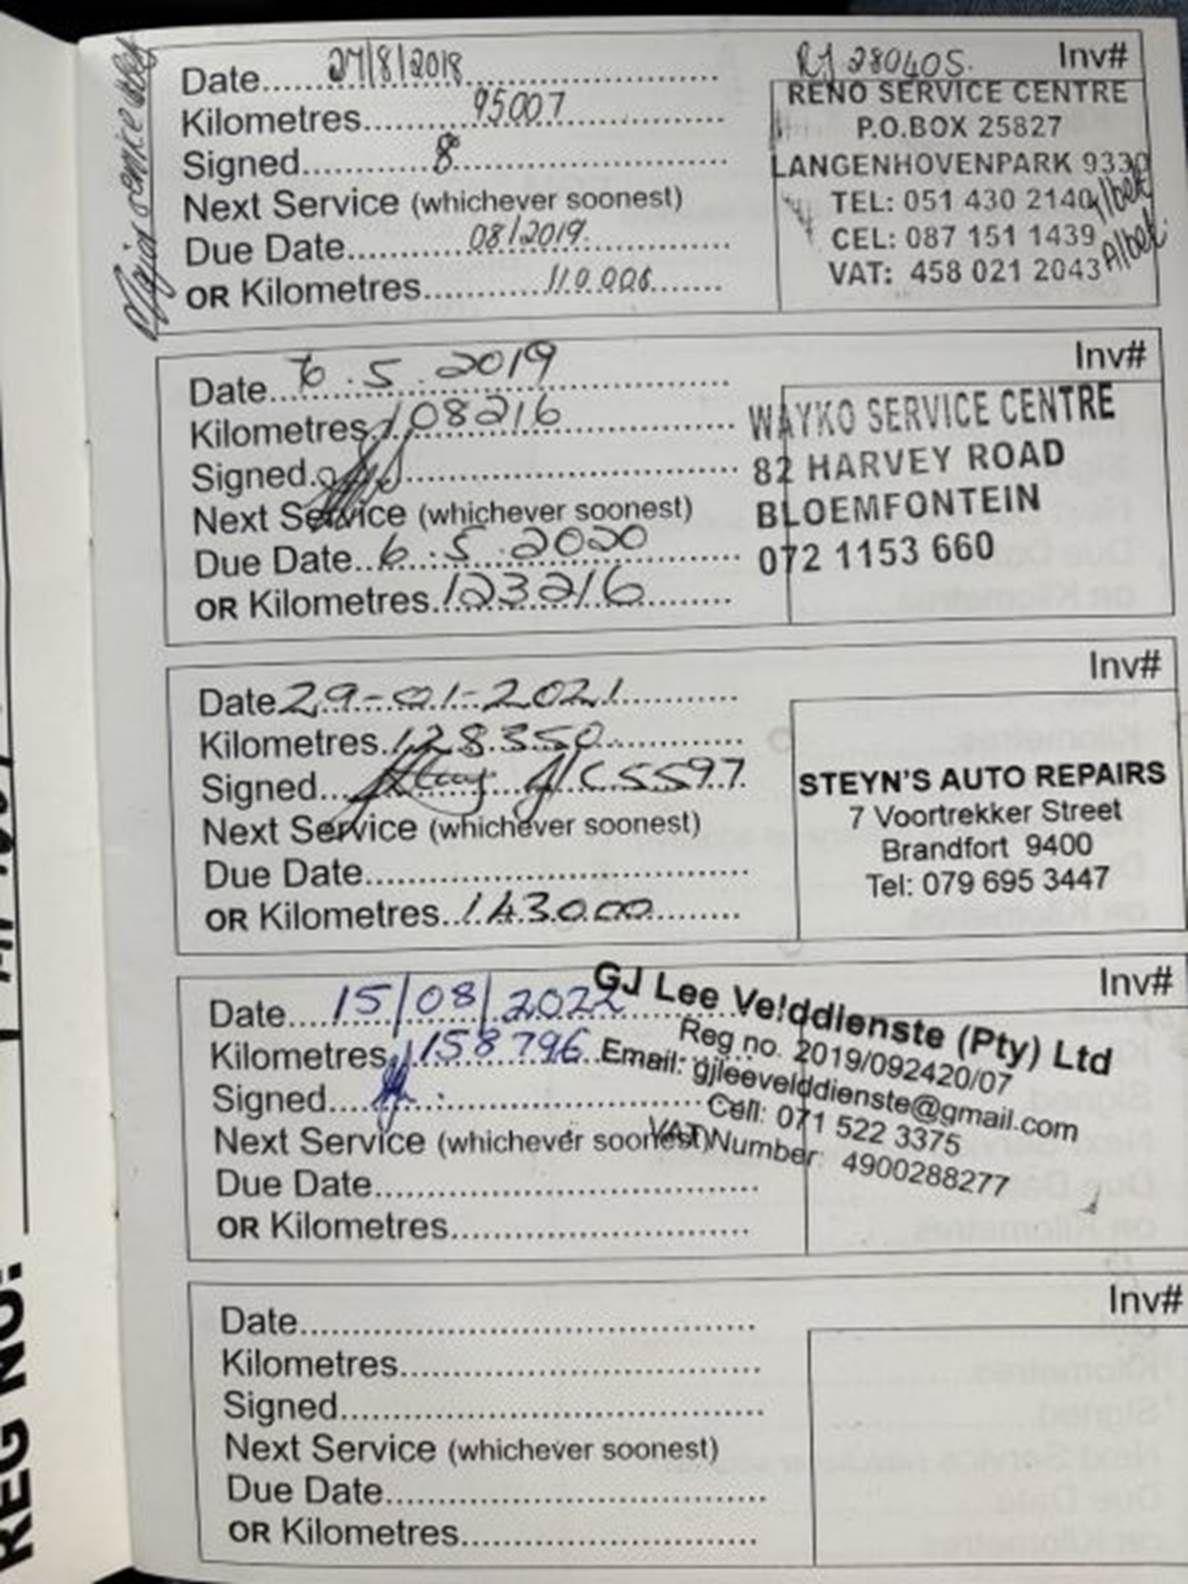 Date 27/8/2018
Kilometres 95007
Signed 8
Next Service (whichever soonest)
Due Date 08/2019
OR Kilometres 110 006
RJ 28040S. Inv#
RENO SERVICE CENTRE
P.O.BOX 25827
LANGENHOVENPARK 9330
TEL: 051 430 2140
CEL: 087 151 1439
VAT: 458 021 2043
Albek
Date 6.5.2019
Kilometres 108216
Signed
Next Service (whichever soonest)
Due Date 6.5.2020
OR Kilometres 123216
Inv#
WAYKO SERVICE CENTRE
82 HARVEY ROAD
BLOEMFONTEIN
072 1153 660
Date 29-01-2021
Kilometres 128350
Signed
Next Service (whichever soonest)
Due Date
OR Kilometres 143000
Inv#
STEYN'S AUTO REPAIRS
7 Voortrekker Street
Brandfort 9400
Tel: 079 695 3447
Date 15/08/2022
Kilometres 158796
Signed
Next Service (whichever soonest)
Due Date
OR Kilometres
Inv#
GJ Lee Velddienste (Pty) Ltd
Reg no. 2019/092420/07
Email: gjleevelddienste@gmail.com
Cell: 071 522 3375
VAT Number: 4900288277
Date
Kilometres
Signed
Next Service (whichever soonest)
Due Date
OR Kilometres
Inv#
REG NO: